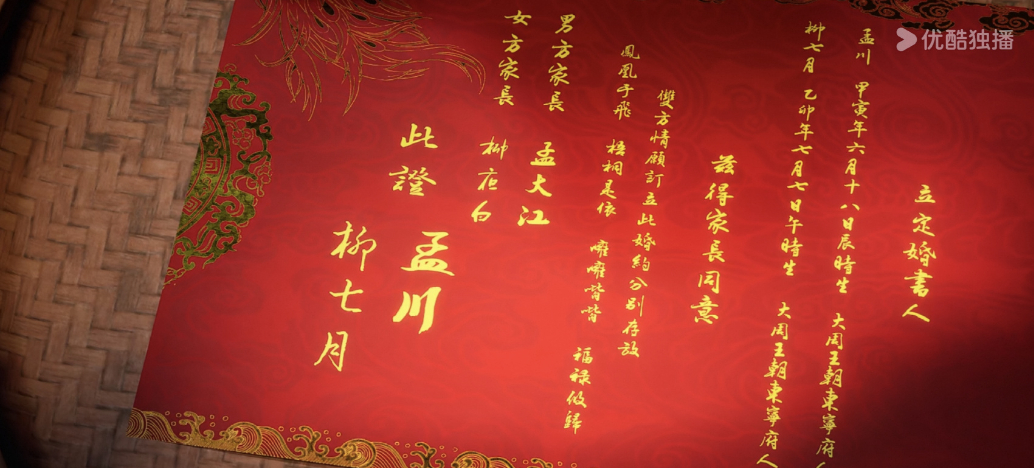 立定婚書人
孟川 甲寅年六月十八日辰時生 大周王朝東寧府人
柳七月 乙卯年七月七日午時生 大周王朝東寧府人
茲得家長同意
雙方情願訂立此婚約分別存放
鳳凰于飛 梧桐是依 噰噰喈喈 福祿攸歸
男方家長 孟大江
女方家長 柳夜白
此證 孟川
柳七月
優酷独播